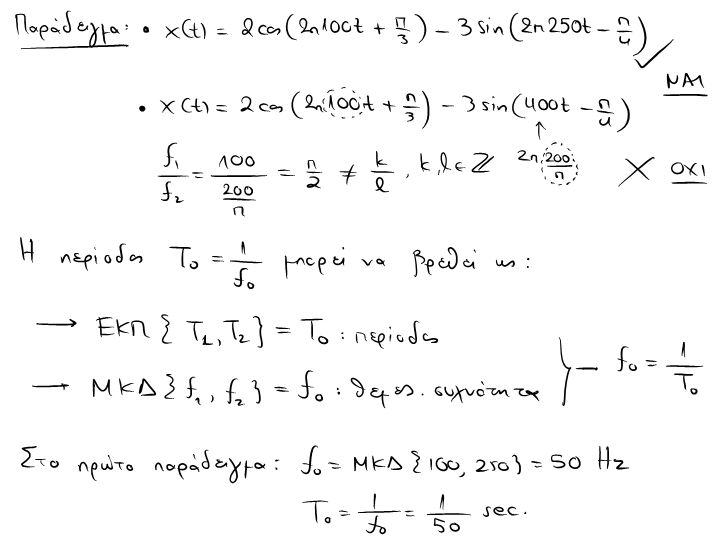 Παράδειγμα: • x(t) = 2cos(2π100t + π/3) − 3sin(2π250t − π/4) ✓ ΝΑΙ
• x(t) = 2cos(2π100t + π/3) − 3sin(400t − π/4)
f₁/f₂ = 100/(200/π) = π/2 ≠ k/l, k,l ∈ ℤ ↑ 2π 200/π ✗ ΟΧΙ
Η περίοδος T₀ = 1/f₀ μπορεί να βρεθεί ως:
→ ΕΚΠ{T₁, T₂} = T₀ : περίοδος
→ ΜΚΔ{f₁, f₂} = f₀ : θεμελ. συχνότητα } − f₀ = 1/T₀
Στο πρώτο παράδειγμα: f₀ = ΜΚΔ{100, 250} = 50 Hz
T₀ = 1/f₀ = 1/50 sec.